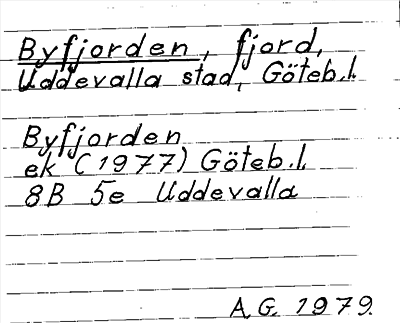 Byfjorden, fjord,
Uddevalla stad, Göteb.l.
Byfjorden
ek (1977) Göteb.l.
8B 5e Uddevalla
A.G. 1979.